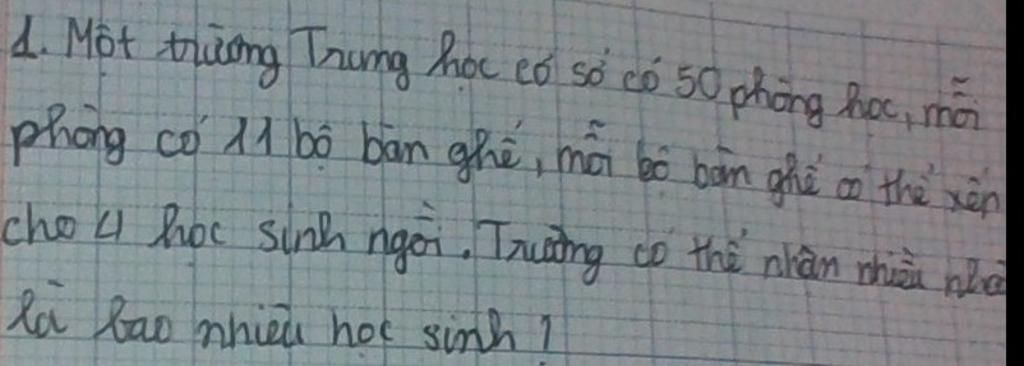 1. Một trường Trung học cơ sở có 50 phòng học, mỗi
phòng có 11 bộ bàn ghế, mỗi bộ bàn ghế có thể xếp
cho 4 học sinh ngồi. Trường có thể nhận nhiều nhất
là bao nhiêu học sinh?